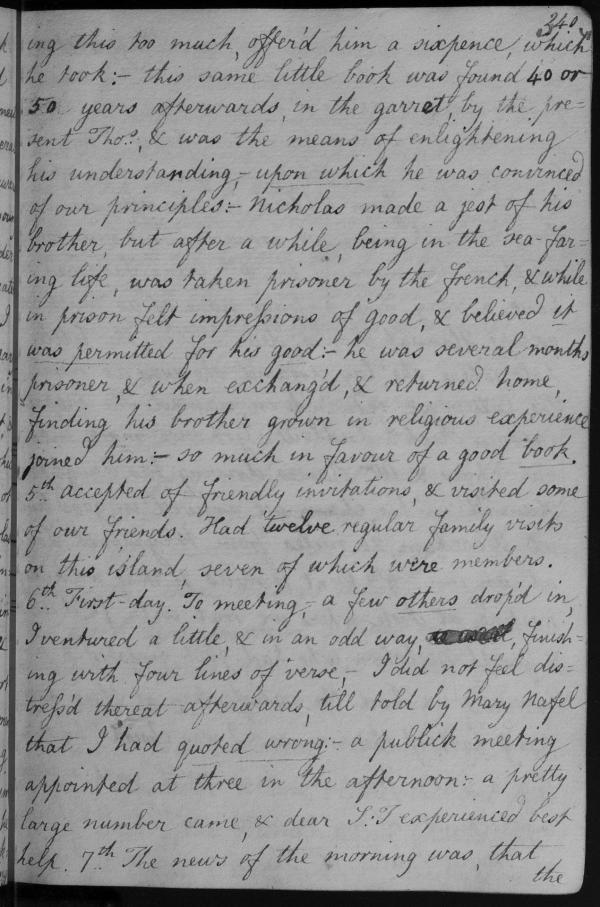 240
ing this too much, offer'd him a sixpence, which
he took:- this same little book was found 40 or
50 years afterwards, in the garret, by the pre=
sent Thos., & was the means of enlightening
his understanding,- upon which he was convinced
of our principles:- Nicholas made a jest of his
brother, but after a while, being in the sea-far=
ing life, was taken prisoner by the french, & while
in prison felt impressions of good, & believed it
was permitted for his good:- he was several months
prisoner, & when exchang'd, & returned home,
finding his brother grown in religious experience
joined him:- so much in favour of a good book.
5th. accepted of friendly invitations, & visited some
of our friends. Had twelve regular family visits
on this island, seven of which were members.
6th. First-day. To meeting,- a few others drop'd in,
I ventured a little, & in an odd way, finish=
ing with four lines of verse,- I did not feel dis=
tress'd thereat afterwards, till told by Mary Nafel
that I had quoted wrong:- a publick meeting
appointed at three in the afternoon:- a pretty
large number came, & dear S:T experienced best
help. 7th. The news of the morning was, that
the